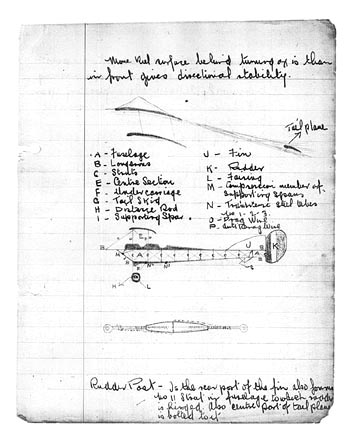 More keel surface behind turning axis than
in front gives directional stability.
Tail plane
A - Fuselage
B - Longerons
C - Struts
E - Centre Section
F - Undercarriage
G - Tail Skid
H - Distance Rod
I - Supporting Spar
J - Fin
K - Rudder
L - Fairing
M - Compression member of
supporting spars
N - Transverse steel tubes
No 1. 2. 3.
O - Drag Wire
P - Anti Drag Wire
J
K
A
H
L
Rudder Post - Is the rear part of the fin also forms
No 11 Strut in fuselage to which rudder
is hinged. Also centre part of tail plane
is bolted to it